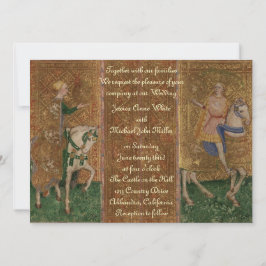 Together with our families
We request the pleasure of your
company at our Wedding
Jessica Anne White
with
Michael John Mills
on Saturday
June twenty third
at four o'clock
The Castle on the Hill
Country Drive
California
Reception to follow